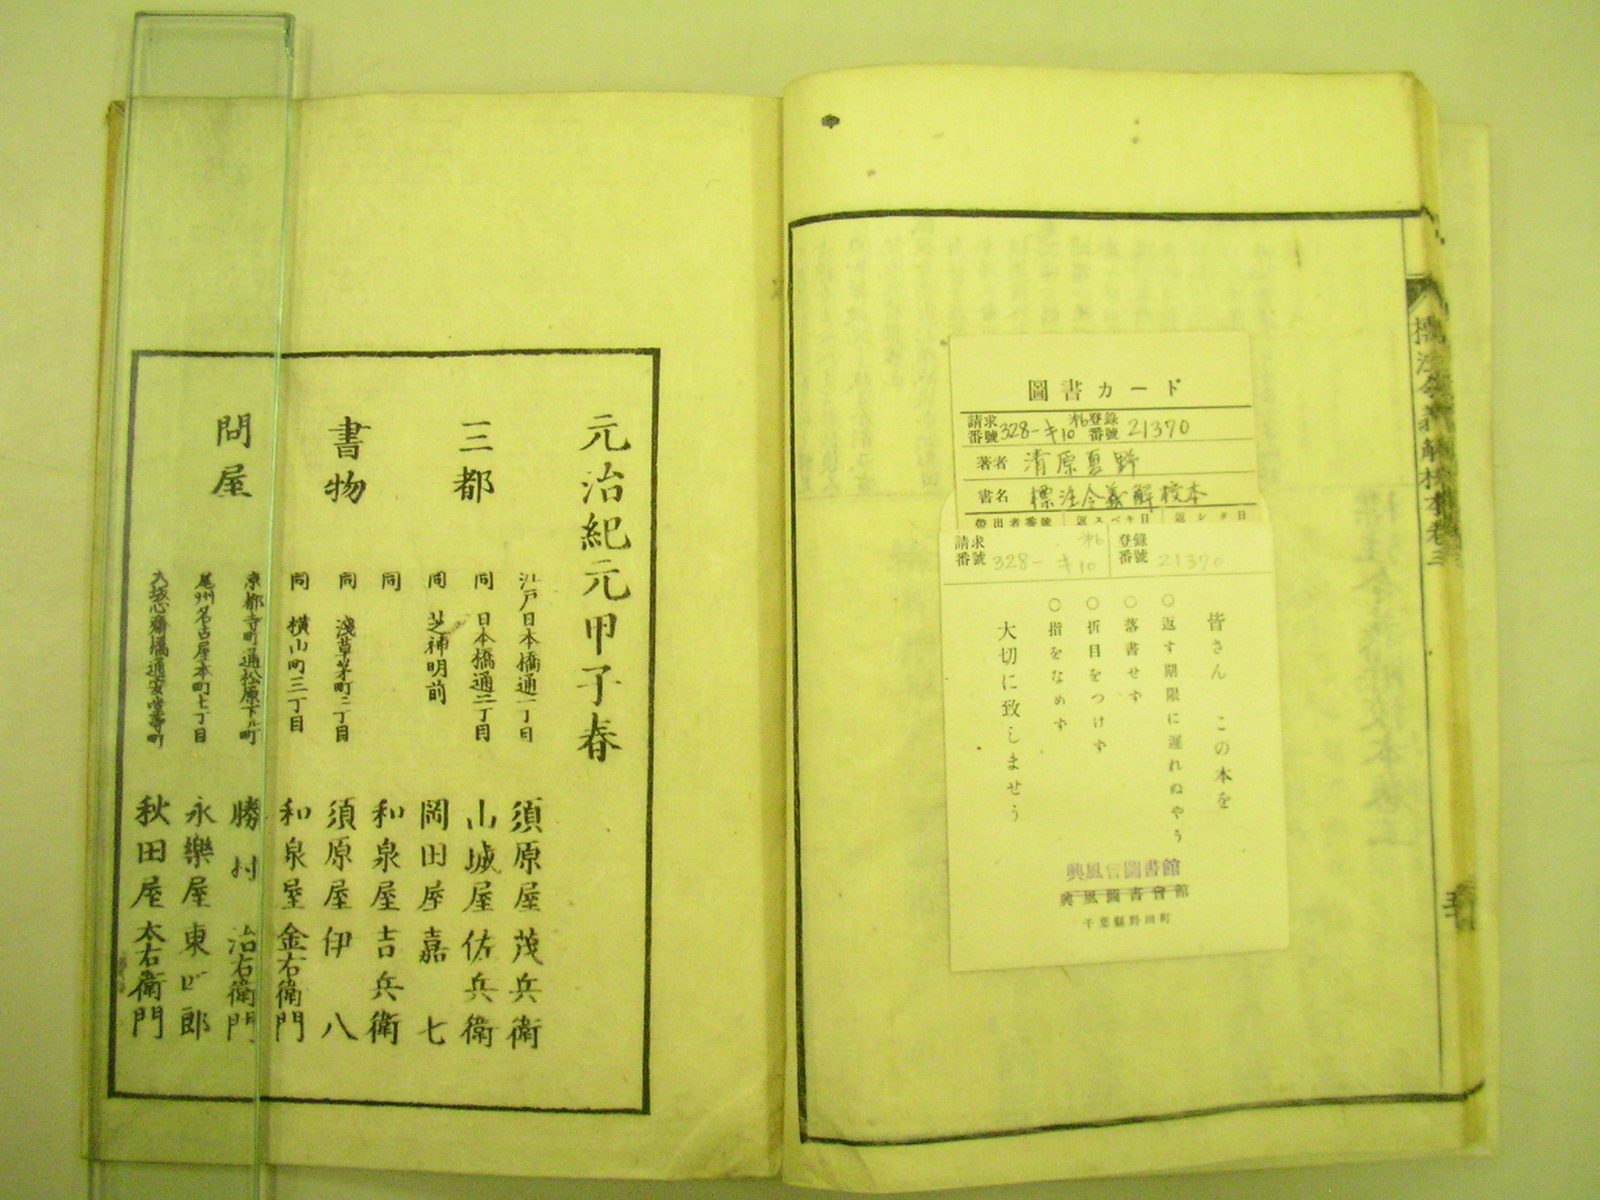 標注令義解校本卷三
圖書カード
請求番號 328-キ10 才6 登錄番號 21370
著者 清原夏野
書名 標注令義解校本
帶出者番號 返スベキ日 返シタ日
請求番號 328-キ10 才6 登錄番號 21370
皆さん この本を
○返す期限に遲れぬやう
○落書せず
○折目をつけず
○指をなめず
大切に致しませう
興風會圖書館
興風圖書會館
千葉縣野田町
元治紀元甲子春
三都
書物
問屋
江戸日本橋通一丁目 須原屋茂兵衛
同 日本橋通二丁目 山城屋佐兵衛
同 芝神明前 岡田屋嘉七
同 和泉屋吉兵衛
同 淺草茅町二丁目 須原屋伊八
同 横山町三丁目 和泉屋金右衛門
京都寺町通松原下ル町 勝村治右衛門
尾州名古屋本町七丁目 永樂屋東四郎
大坂心齋橋通安堂寺町 秋田屋太右衛門